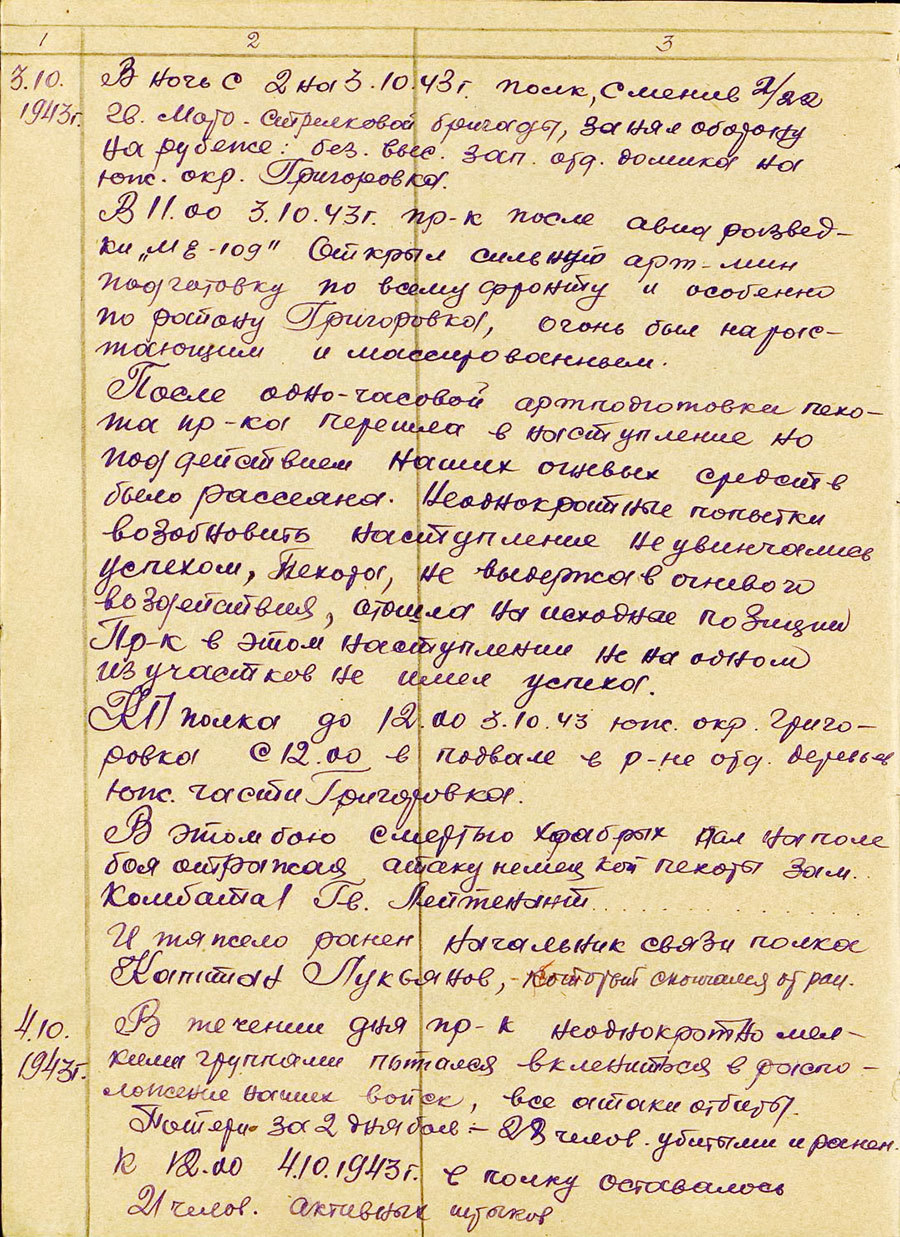 1 2 3
3.10. В ночь с 2 на 3.10.43г. полк, сменив 2/22
1943г. гв. Мото-стрелковой бригады, занял оборону
на рубеже: без. выс. зап. отд. домика на
юж. окр. Григоровка.
В 11.00 3.10.43г. пр-к после авиаразвед-
ки „МЕ-109" Открыл сильную арт-мин
подготовку по всему фронту и особенно
по району Григоровка, огонь был нарас-
тающим и массированным.
После одно-часовой артподготовки пехо-
та пр-ка перешла в наступление но
под действием наших огневых средств
было рассеяна. Неоднократные попытки
возобновить наступление не увинчались
успехом, Пехота, не выдержав огневого
воздействия, отошла на исходные позиции
Пр-к в этом наступлении не на одном
из участков не имел успеха.
КП полка до 12.00 3.10.43 юж. окр. Григо-
ровка с 12.00 в подвале в р-не отд. деревья
юж. части Григоровка.
В этом бою смертью храбрых пал на поле
боя отражая атаку немецкой пехоты зам.
Комбата 1 Гв. Лейтенант..........
И тяжело ранен начальник связи полка
Капитан Лукьянов, - который скончался от ран.
4.10. В течении дня пр-к неоднократно мел-
1943г. кими группами пытался вклениться в распо-
ложение наших войск, все атаки отбиты.
Потери за 2 дня боя - 28 челов. убитыми и ранен.
К 12.00 4.10.1943г. в полку оставалось
21 челов. активных штыков